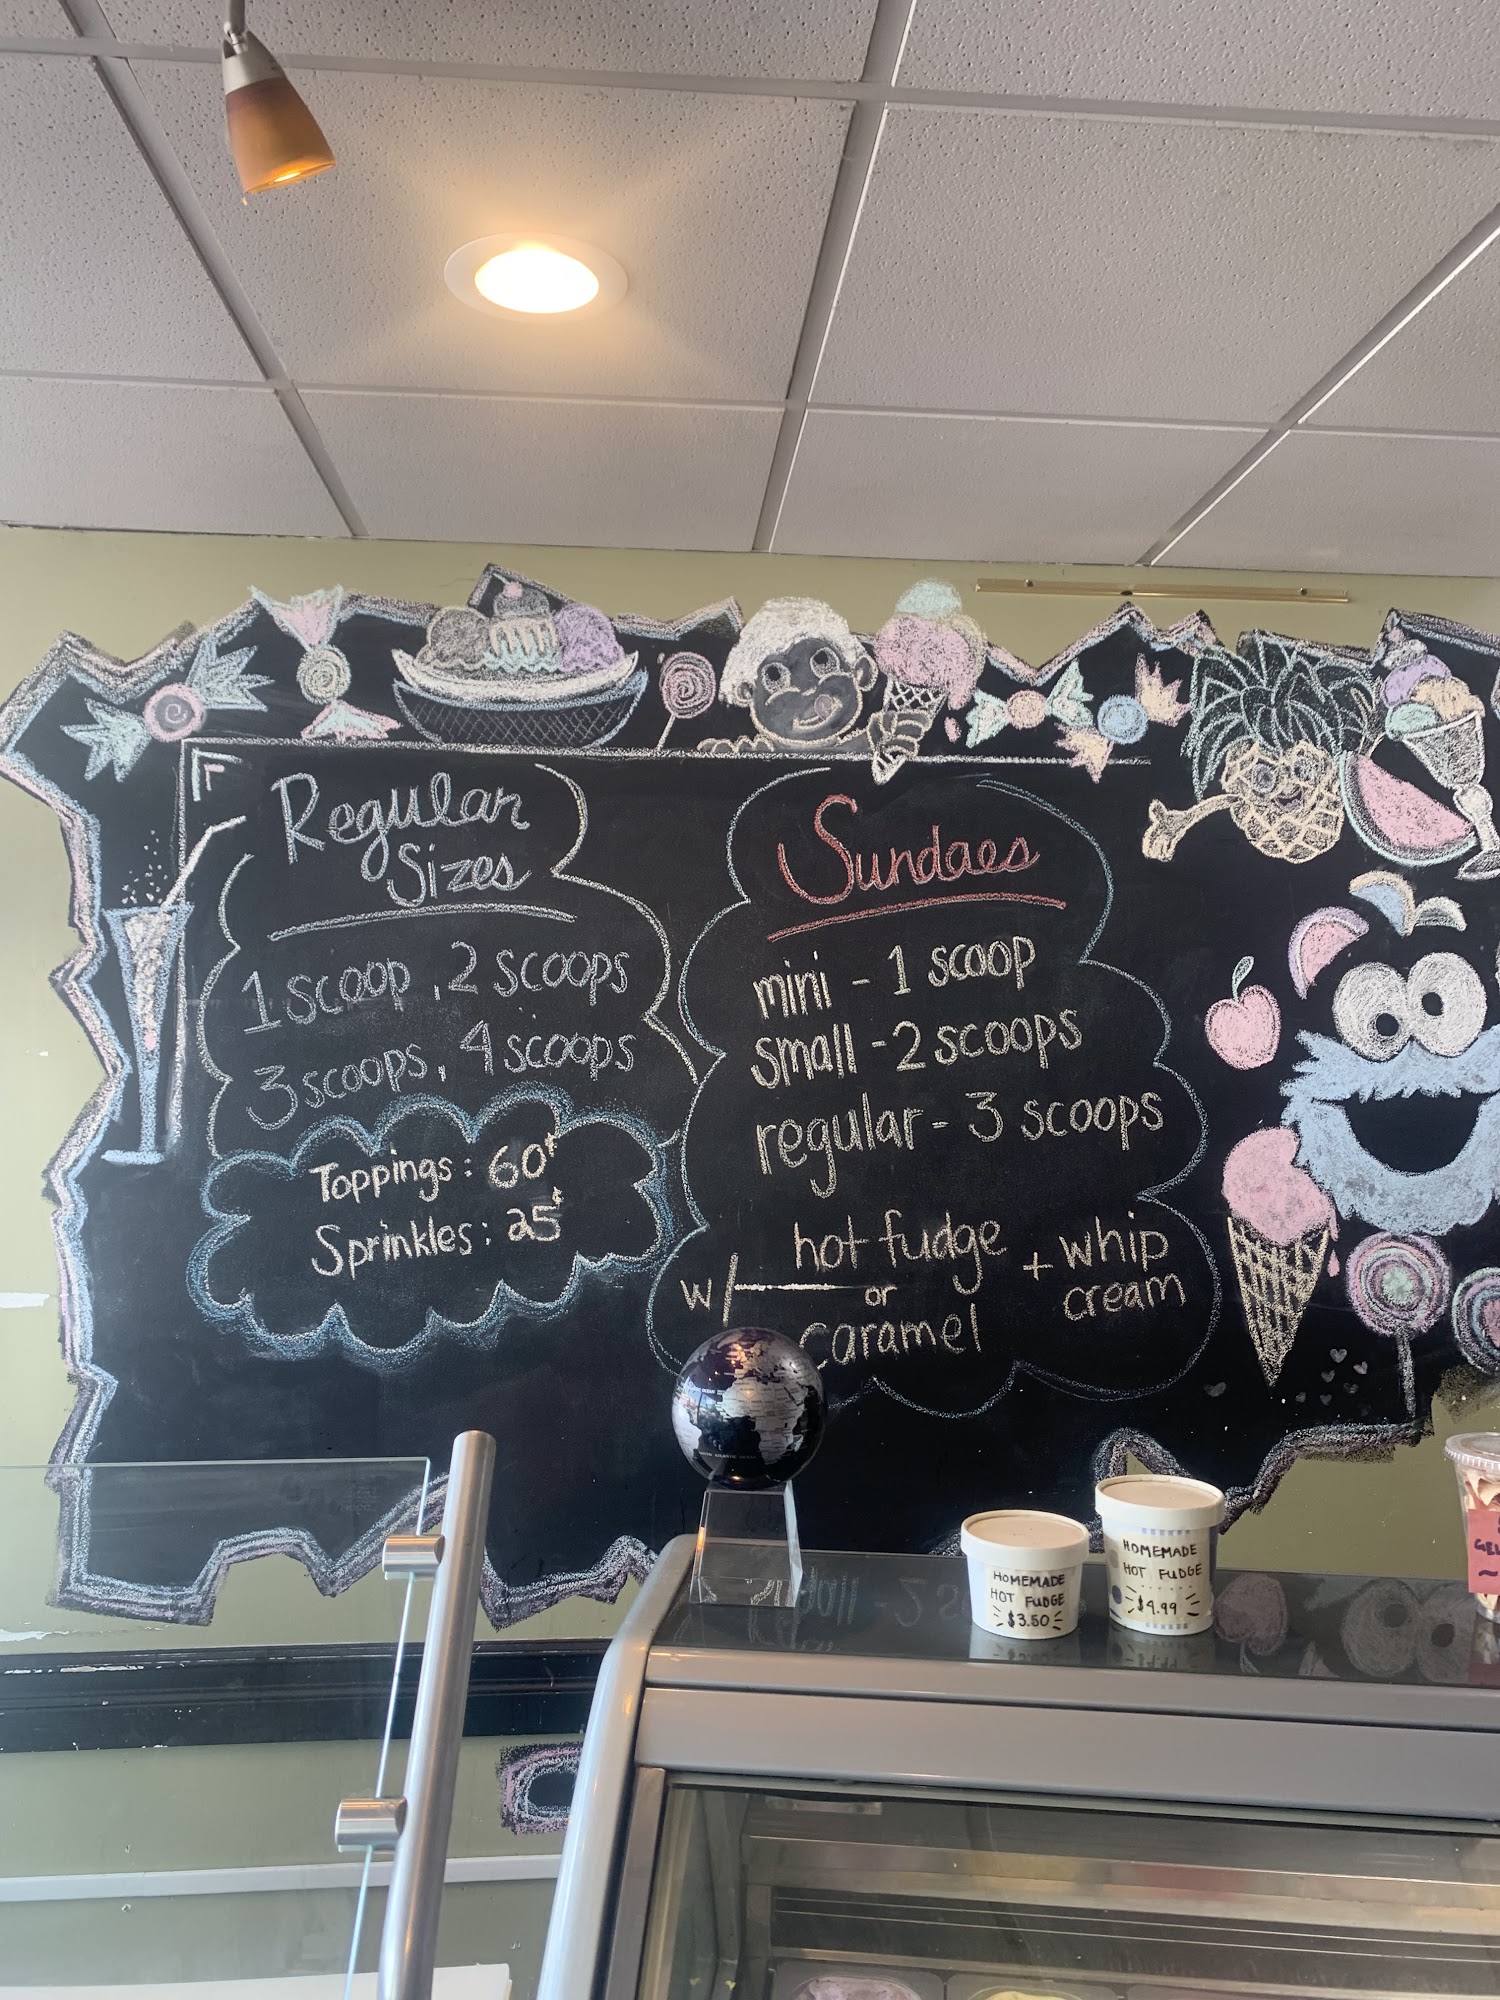 Regular
Sizes
1 scoop, 2 scoops
3 scoops, 4 scoops
Toppings: 60¢
Sprinkles: 25¢
Sundaes
mini - 1 scoop
small - 2 scoops
regular - 3 scoops
w/ hot fudge
or
caramel
+ whip
cream
HOMEMADE
HOT FUDGE
$3.50
HOMEMADE
HOT FUDGE
$4.99